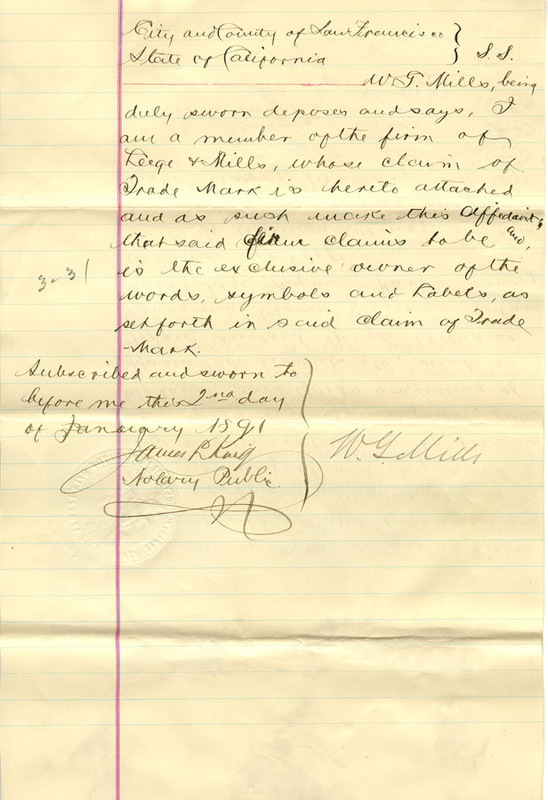 City and County of San Francisco
State of California } S.S.
W. G. Mills, being
duly sworn deposes and says, I
am a member of the firm of
Leege & Mills, whose claim of
Trade Mark is hereto attached
and as such make this affedavit;
that said firm claims to be and,
is the exclusive owner of the
words, symbols and Labels, as
set forth in said claim of Trade
-Mark.
3-31
Subscribed and sworn to
before me this 2nd day
of January 1891
James L. King
Notary Public
W. G. Mills